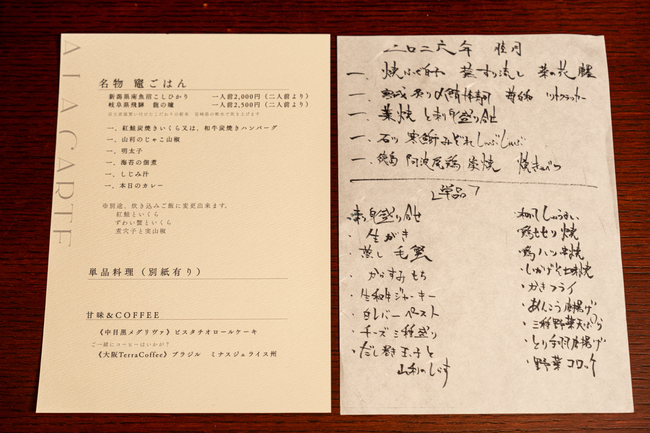 A LA CARTE
名物 竈ごはん
新潟県南魚沼こしひかり 一人前2,000円(二人前より)
岐阜県飛騨 龍の瞳 一人前2,500円(二人前より)
一、紅鮭炭焼きいくら又は、和牛炭焼きハンバーグ
一、山利のじゃこ山椒
一、明太子
一、海苔の佃煮
一、しじみ汁
一、本日のカレー
※別途、炊き込みご飯に変更出来ます。
紅鮭といくら
ずわい蟹といくら
煮穴子と実山椒
単品料理(別紙有り)
甘味&COFFEE
《中目黒メグリヴァ》ピスタチオロールケーキ
ご一緒にコーヒーはいかが?
《大阪TerraCoffee》ブラジル ミナスジェライス州
二〇二六年
一、焼ふぐ白子 菜の花
一、
一、藁焼と刺身盛り合せ
一、石川 寒鰤みぞれしゃぶしゃぶ
一、徳島 阿波尾鶏 炭焼
単品
・刺身盛り合せ
・生がき
・蒸し毛蟹
・からすみもち
・生和牛ジャーキー
・白レバーペースト
・チーズ三種盛り
・だし巻玉子と
山利のしらす
・鶏せせり焼
・鶏ハツ串焼
・かきフライ
・あんこう唐揚げ
・三種野菜天ぷら
・とり手羽唐揚げ
・野菜コロッケ